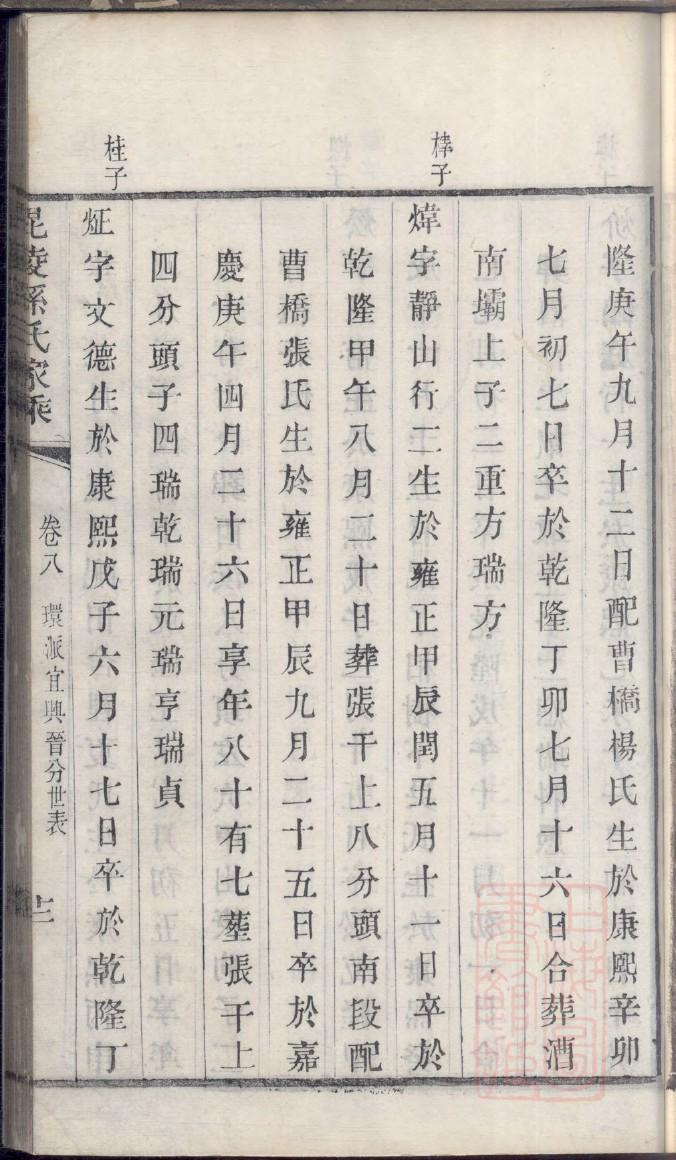 隆庚午九月十二日配曹橋楊氏生於康熙辛卯
七月初七日卒於乾隆丁卯七月十六日合葬湭
南壩上子二重方瑞方
棒子
煒字靜山行二生於雍正甲辰閏五月十一日卒於
乾隆甲午八月二十日葬張干上八分頭南段配
曹橋張氏生於雍正甲辰九月二十五日卒於嘉
慶庚午四月二十六日享年八十有七塟張干上
四分頭子四瑞乾瑞元瑞亨瑞貞
桂子
炡字文德生於康熙戊子六月十七日卒於乾隆丁
毘陵孫氏家乘
卷八 環派宜興晉分世表